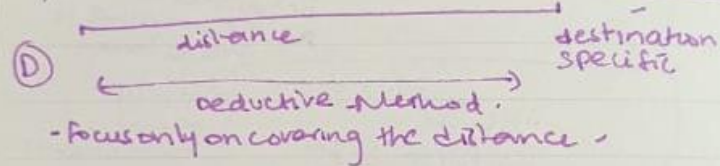 distance
destination
specific
D
Deductive Method.
- Focus only on covering the distance -